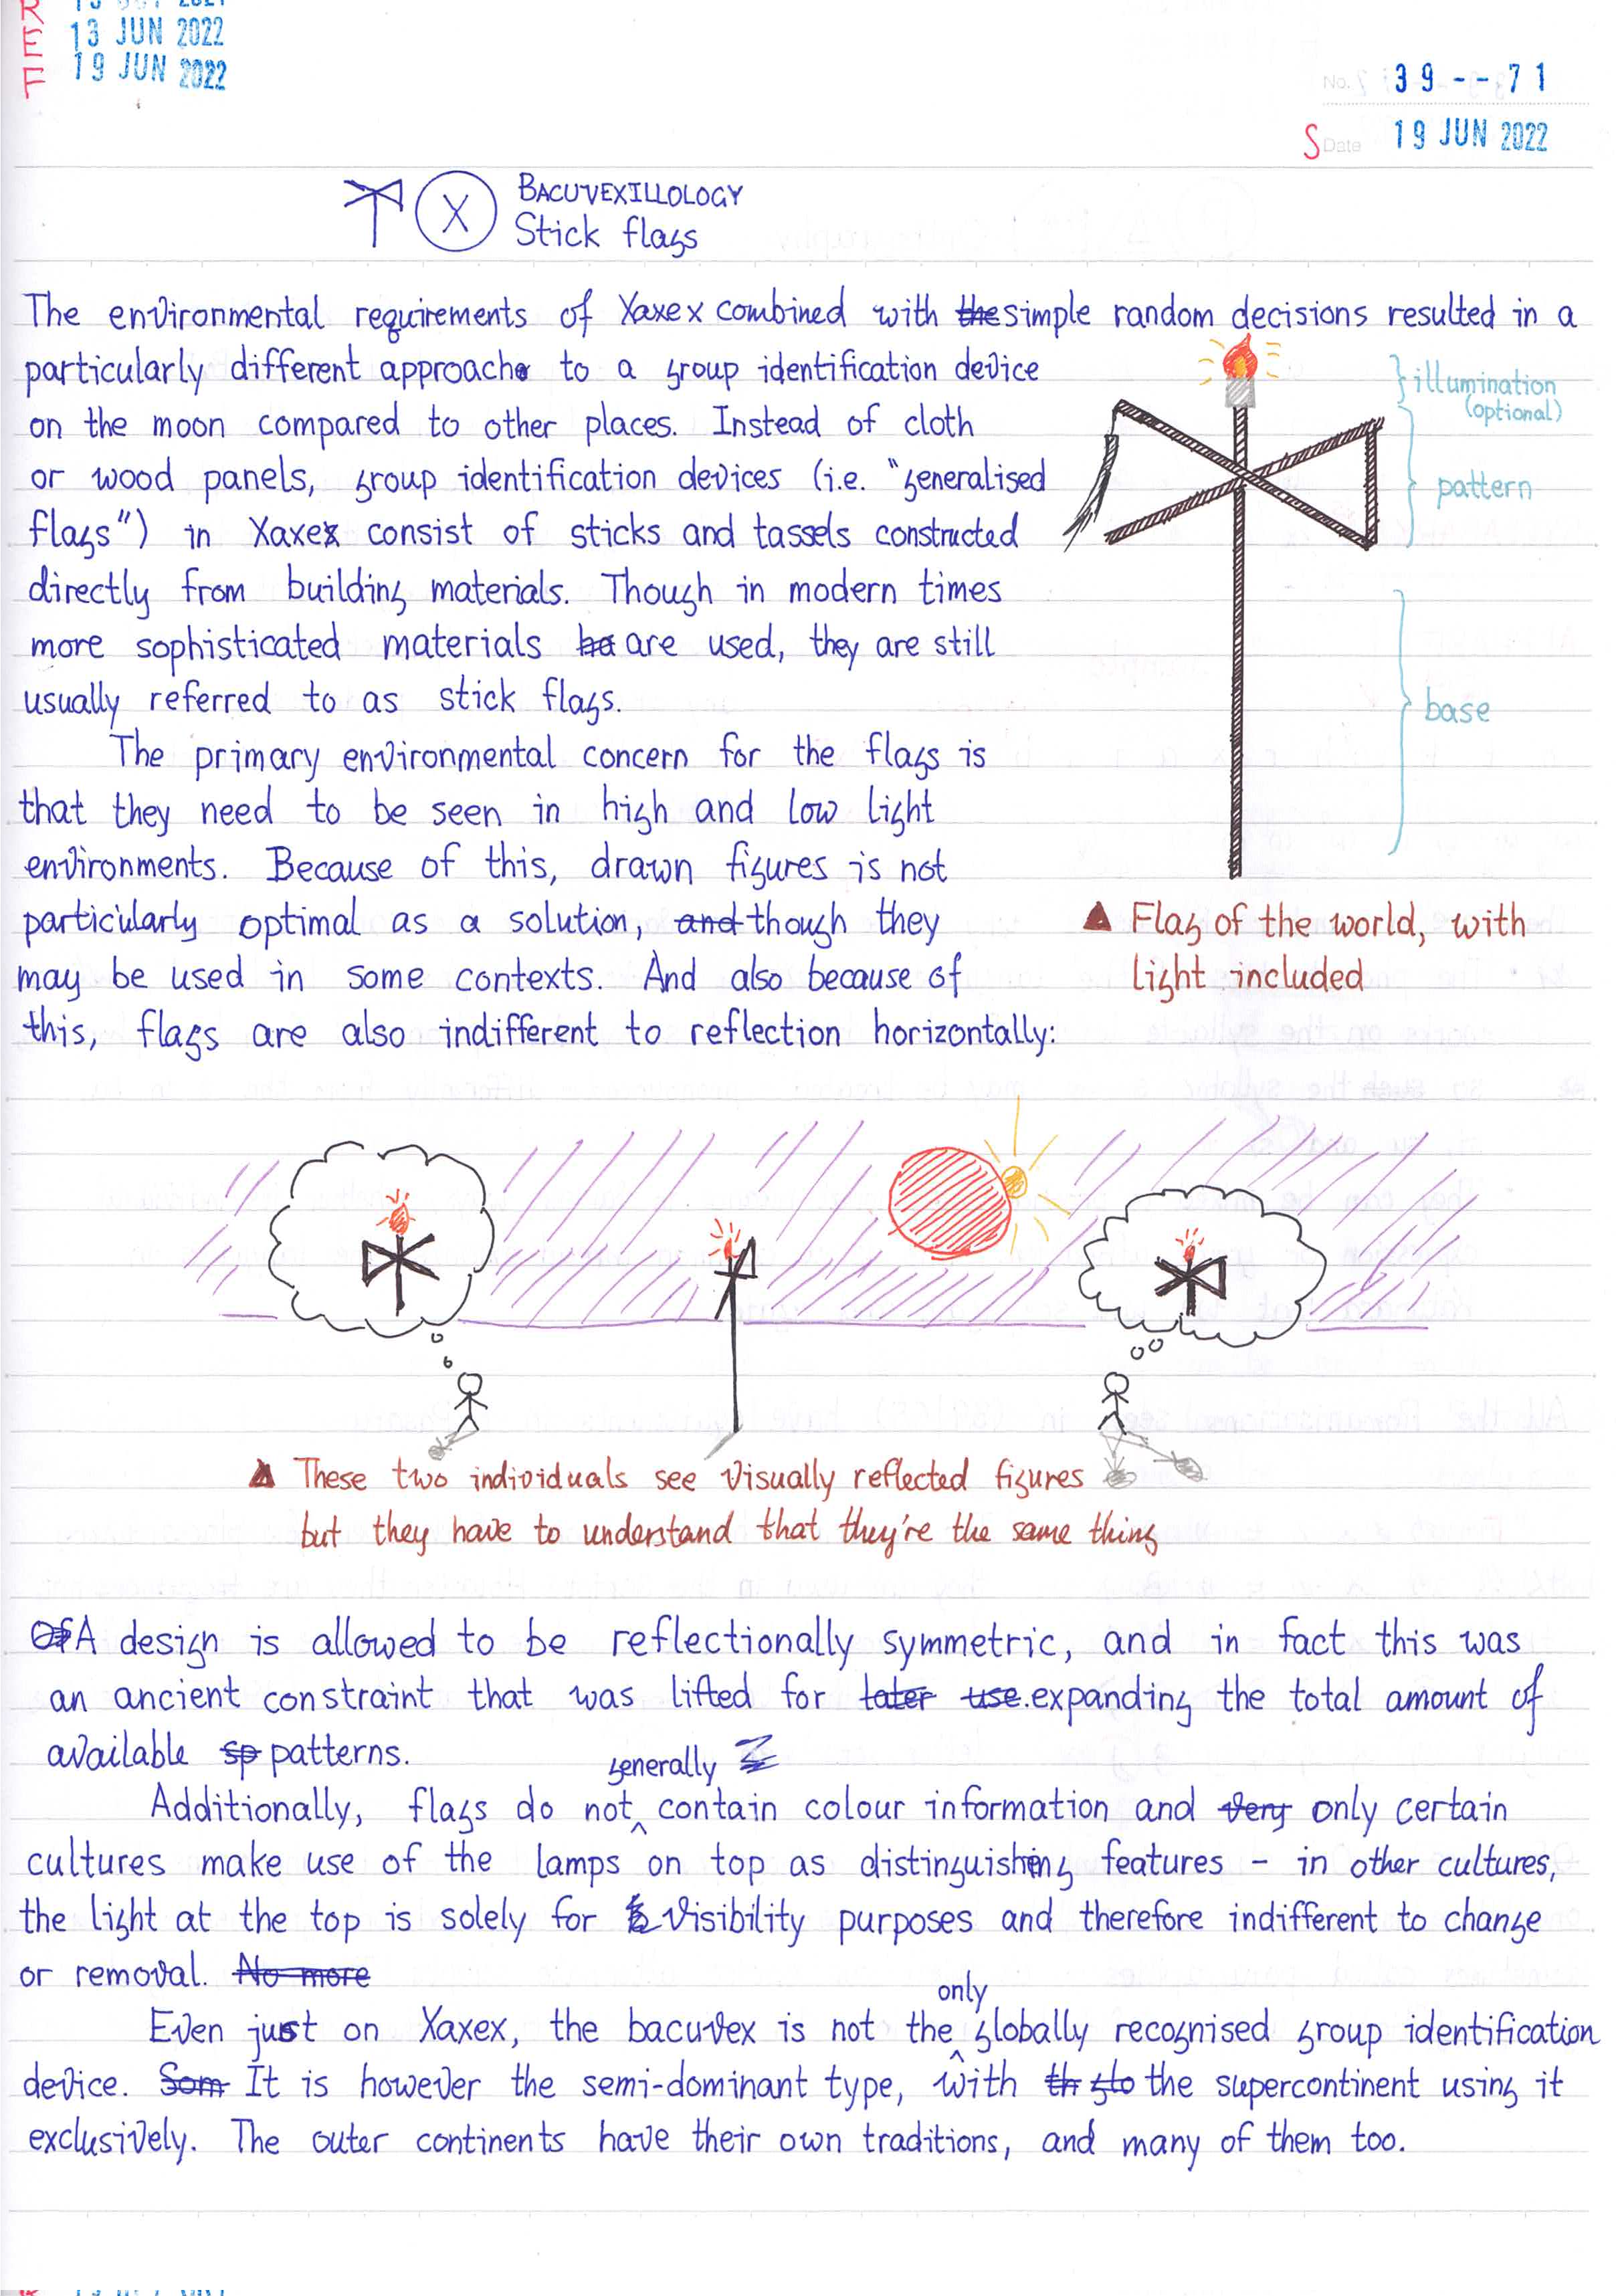 REF
13 JUN 2022
19 JUN 2022
No. 39--71
S Date 19 JUN 2022
X BACUVEXILLOLOGY
Stick flags
The environmental requirements of Xaxex combined with the simple random decisions resulted in a
particularly different approach to a group identification device
on the moon compared to other places. Instead of cloth
or wood panels, group identification devices (i.e. "generalised
flags") in Xaxex consist of sticks and tassels constructed
directly from building materials. Though in modern times
more sophisticated materials ha are used, they are still
usually referred to as stick flags.
The primary environmental concern for the flags is
that they need to be seen in high and low light
environments. Because of this, drawn figures is not
particularly optimal as a solution, and though they
may be used in some contexts. And also because of
this, flags are also indifferent to reflection horizontally:
illumination
(optional)
pattern
base
▲ Flag of the world, with
light included
▲ These two individuals see visually reflected figures
but they have to understand that they're the same thing
Of A design is allowed to be reflectionally symmetric, and in fact this was
an ancient constraint that was lifted for later use. expanding the total amount of
available sp patterns.
Additionally, flags do not generally contain colour information and very only certain
cultures make use of the lamps on top as distinguishing features – in other cultures,
the light at the top is solely for visibility purposes and therefore indifferent to change
or removal. No more
Even just on Xaxex, the bacuvex is not the only globally recognised group identification
device. Som It is however the semi-dominant type, with th glo the supercontinent using it
exclusively. The outer continents have their own traditions, and many of them too.